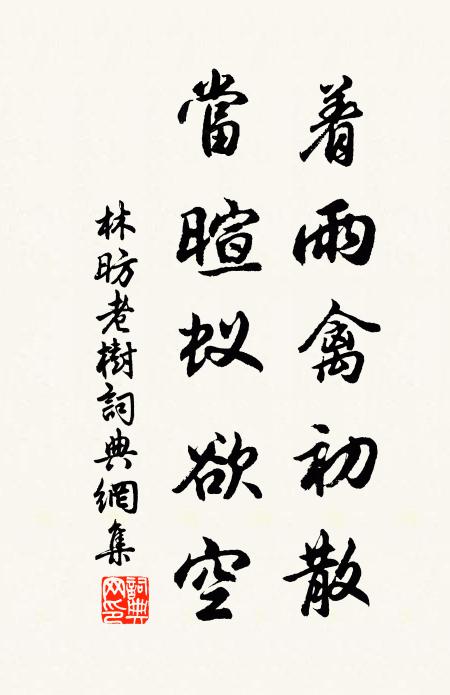 着雨禽初散
當暄蚁欲空
林昉老樹詞典網集
詞典網印